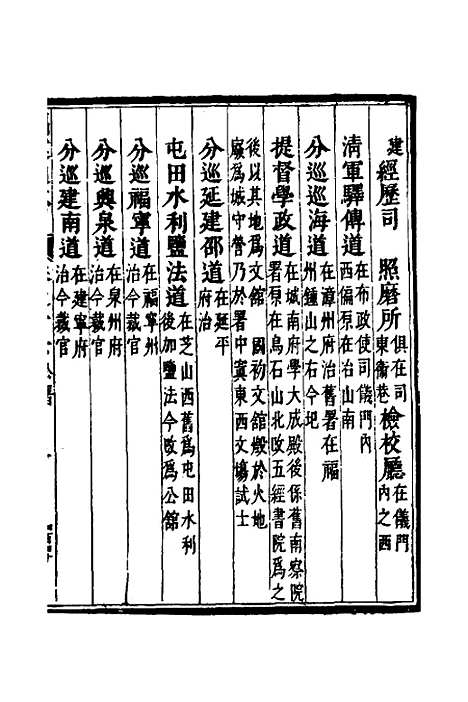 建
經歷司 照磨所俱在司東衞巷檢校廳在儀門內之西
清軍驛傳道在布政使司儀門內西偏原在冶山南
分巡巡海道在漳州府治舊署在福州鍾山之右今圯
提督學政道在城南府學大成殿後係舊南察院署原在烏石山北改五經書院爲之
後以其地爲文館 國初文館燬於火地廢爲城守營乃於署中寘東西文場試士
分巡延建邵道在延平府治
屯田水利鹽法道在芝山西舊爲屯田水利後加鹽法今改爲公館
分巡福寧道在福寧州治今裁官
分巡興泉道在泉州府治今裁官
分巡建南道在建寧府治今裁官